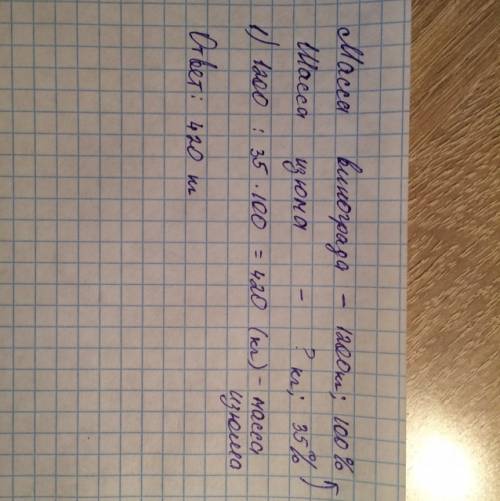 Масса винограда - 1200кг; 100%
Масса изюма - ? кг; 35%
1) 1200 : 35 · 100 = 420 (кг) - масса
изюма
Ответ: 420 кг